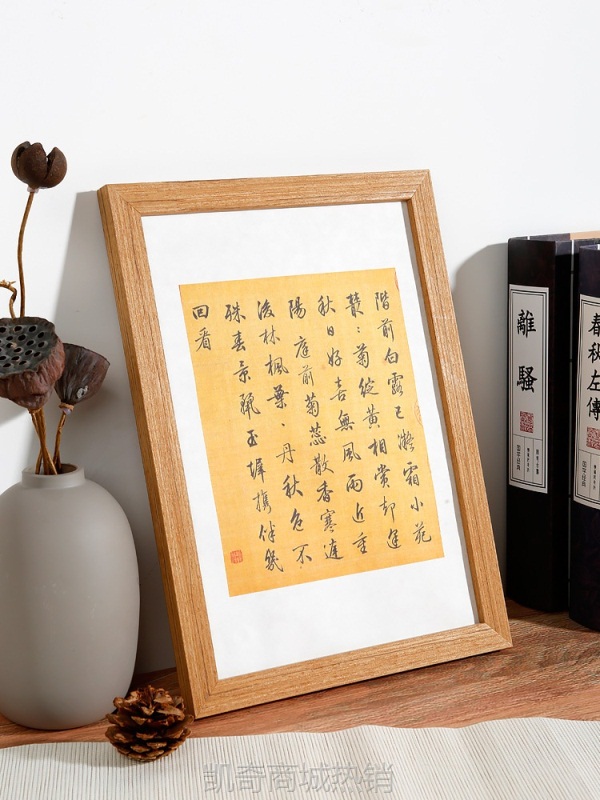 階前白露已凝霜小花
叢：菊綻黃相賞却逢
秋日好喜無風雨近重
陽庭前菊蕊散香寒遶
後林楓葉、丹秋色不
殊春景麗玉墀攜伴幾
回看
離騷
春秋左傳
凯奇商城热销